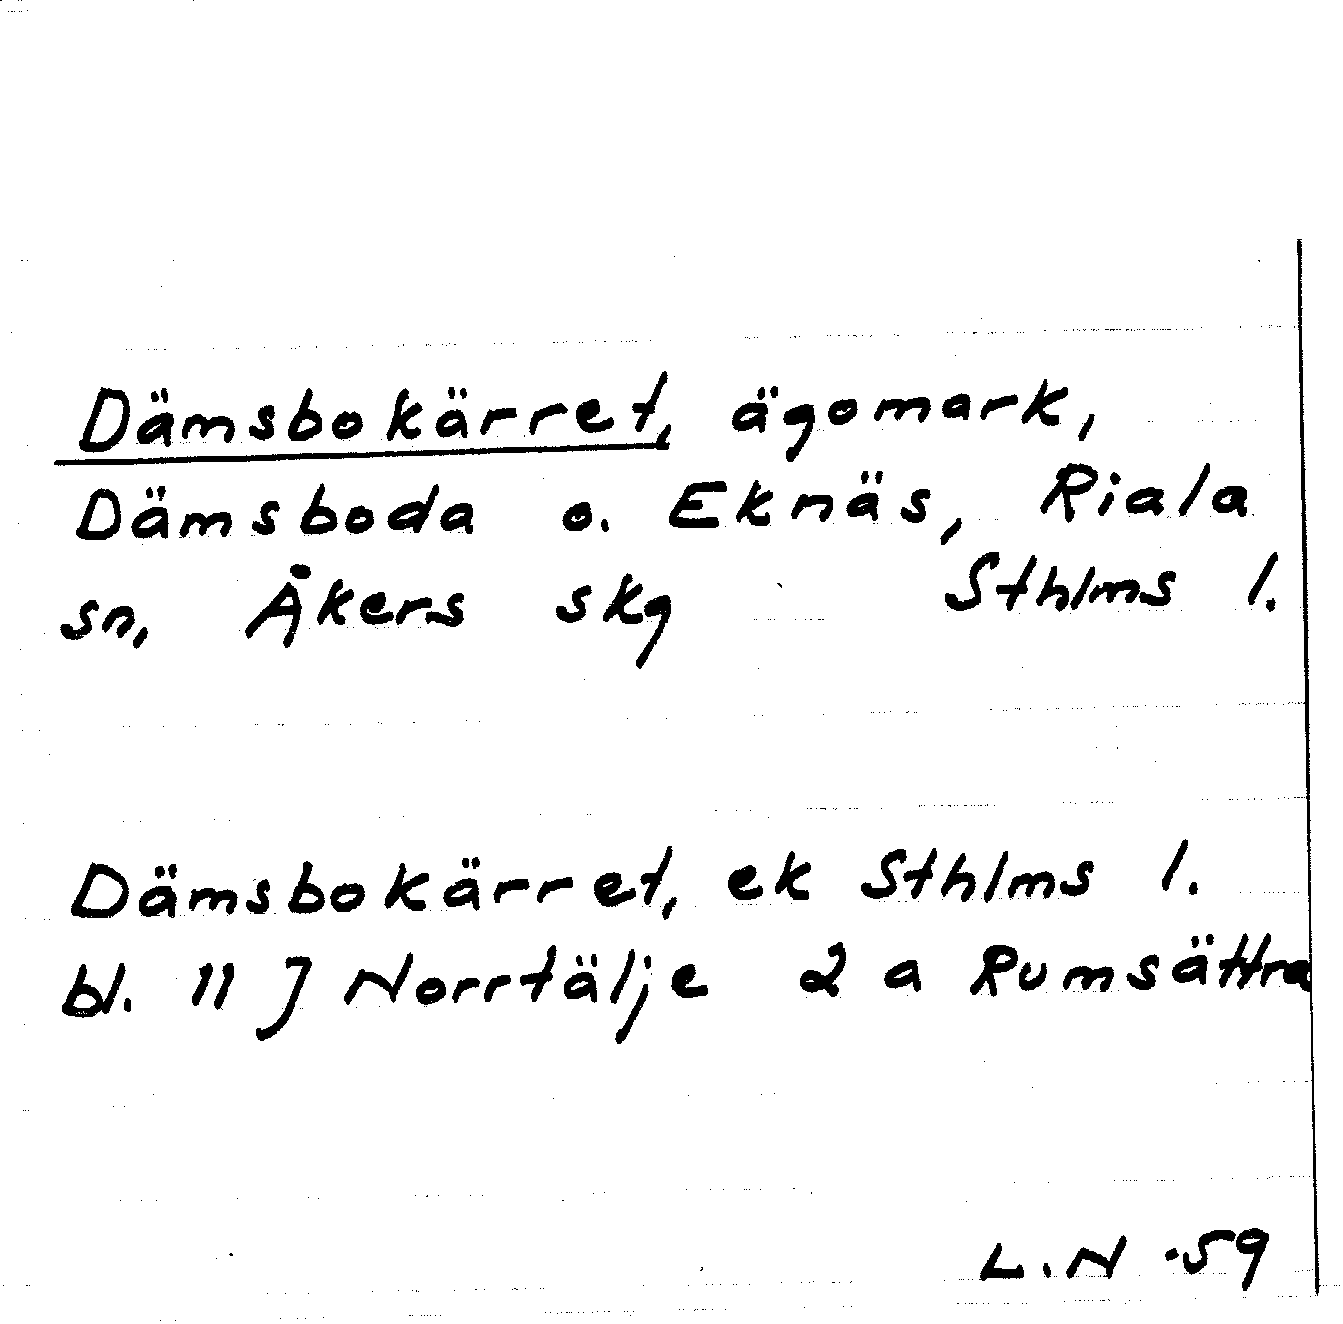 Dämsbokärret, ägomark,
Dämsboda o. Eknäs, Riala
sn, Åkers skg Sthlms l.
Dämsbokärret, ek Sthlms l.
bl. 11 J Norrtälje 2 a Rumsättra
L.N -59